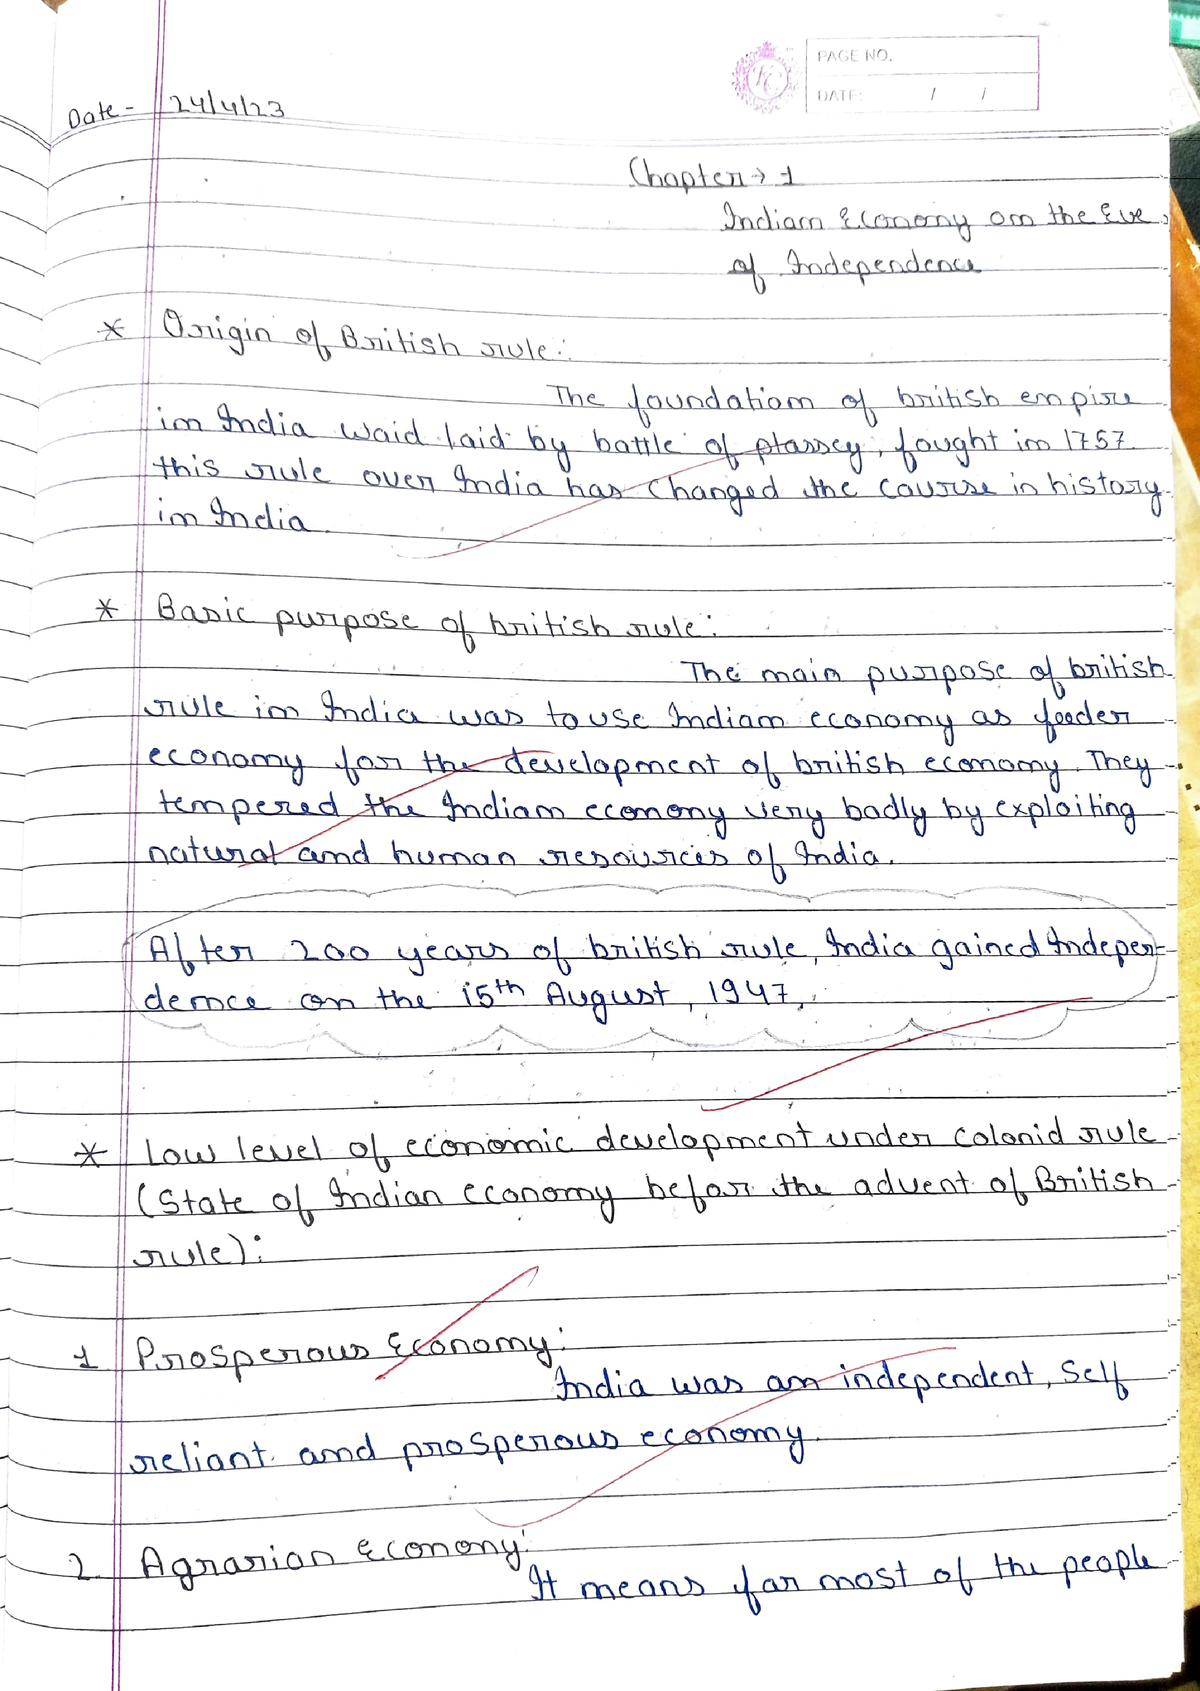 PAGE NO.
DATE: / /
Date - 24/4/23
Chapter → 1
Indian Economy on the Eve
of Independence
* Origin of British rule :
The foundation of british empire
in India waid laid by battle of plassey, fought in 1757.
this rule over India has changed the course in history
in India
* Basic purpose of british rule :
The main purpose of british
rule in India was to use Indian economy as feeder
economy for the development of british economy. They
tempered the Indian economy very badly by exploiting
natural and human resources of India.
After 200 years of british rule, India gained Indepen-
dence on the 15th August, 1947,
* Low level of economic development under colonid rule
(State of Indian economy befor the advent of British
rule) :
1 Prosperous Economy :
India was an independent, Self
reliant and prosperous economy.
2. Agrarian Economy :
It means for most of the people